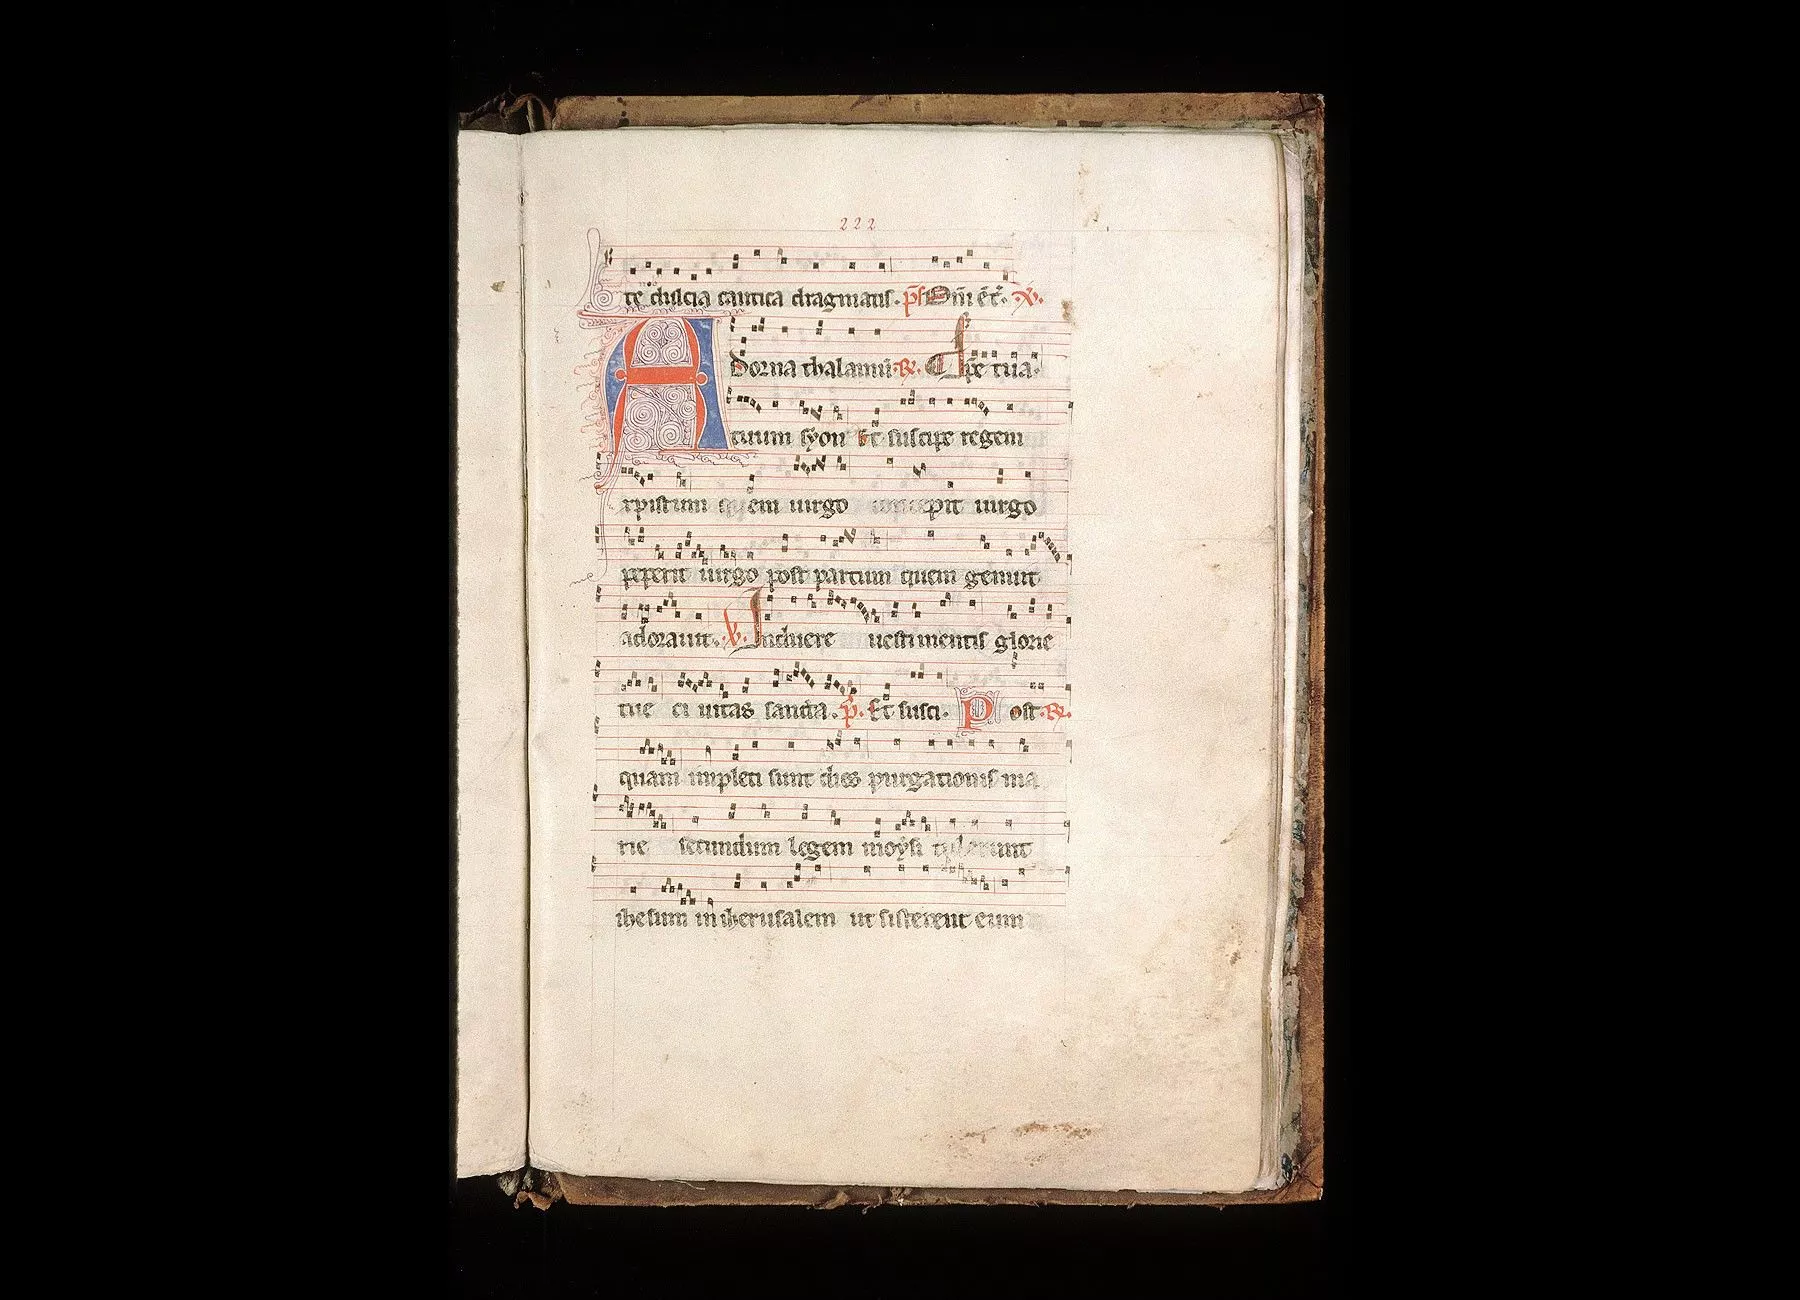 222
te dulcia cantica dragmatis. ps Om̄ēē. 
Adorna thalamū. R. Cpe tua.
tuum syon Et suscipe regem
xpistum quem uirgo concepit uirgo
peperit uirgo post partum quem genuit
adorauit. V. Induere uestimentis glorie
tue ciuitas sancta. p. Et susci. Post R.
quam impleti sunt dies purgationis ma
rie secundum legem moysi tulerunt
ihesum in iherusalem ut sisterent eum